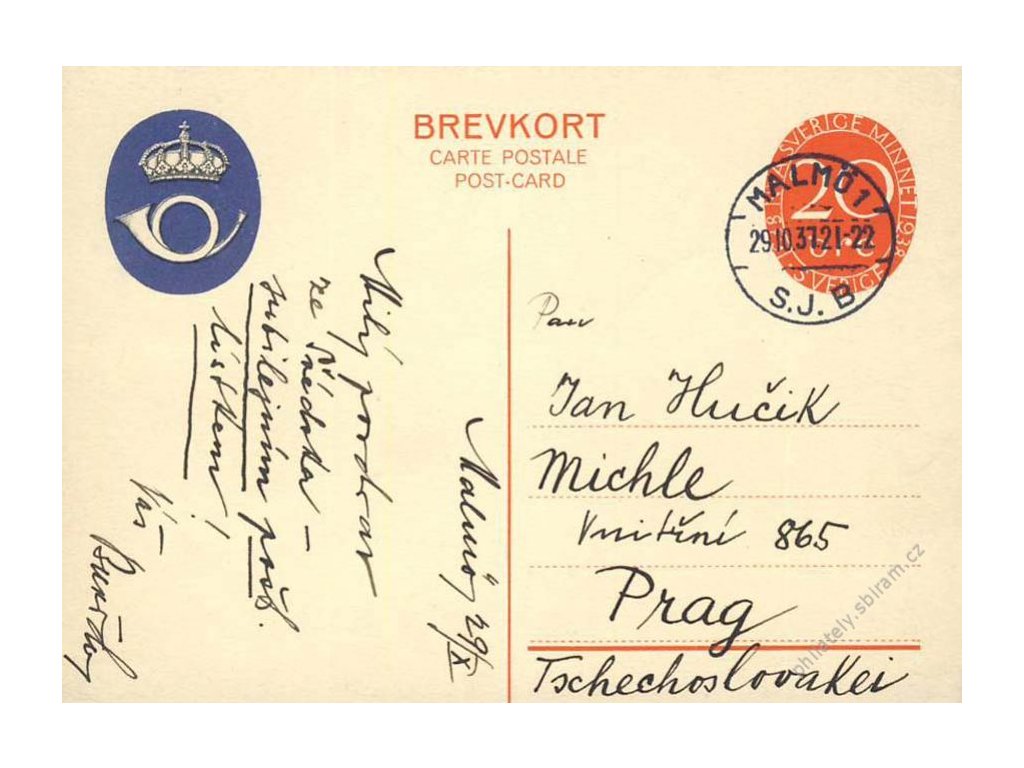 BREVKORT
CARTE POSTALE
POST-CARD
SVERIGE MINNET 1938
20
ÖRE
SVERIGE
MALMÖ 1
29.10.37.21-22
S.J. B
Malmö, 29/X
Milý pozdrav
ze Švédska –
jubilejním pošt.
lístkem!
Váš
Pan
Jan Hučík
Michle
Vnitřní 865
Prag
Tschechoslovakei
philately.sbiram.cz